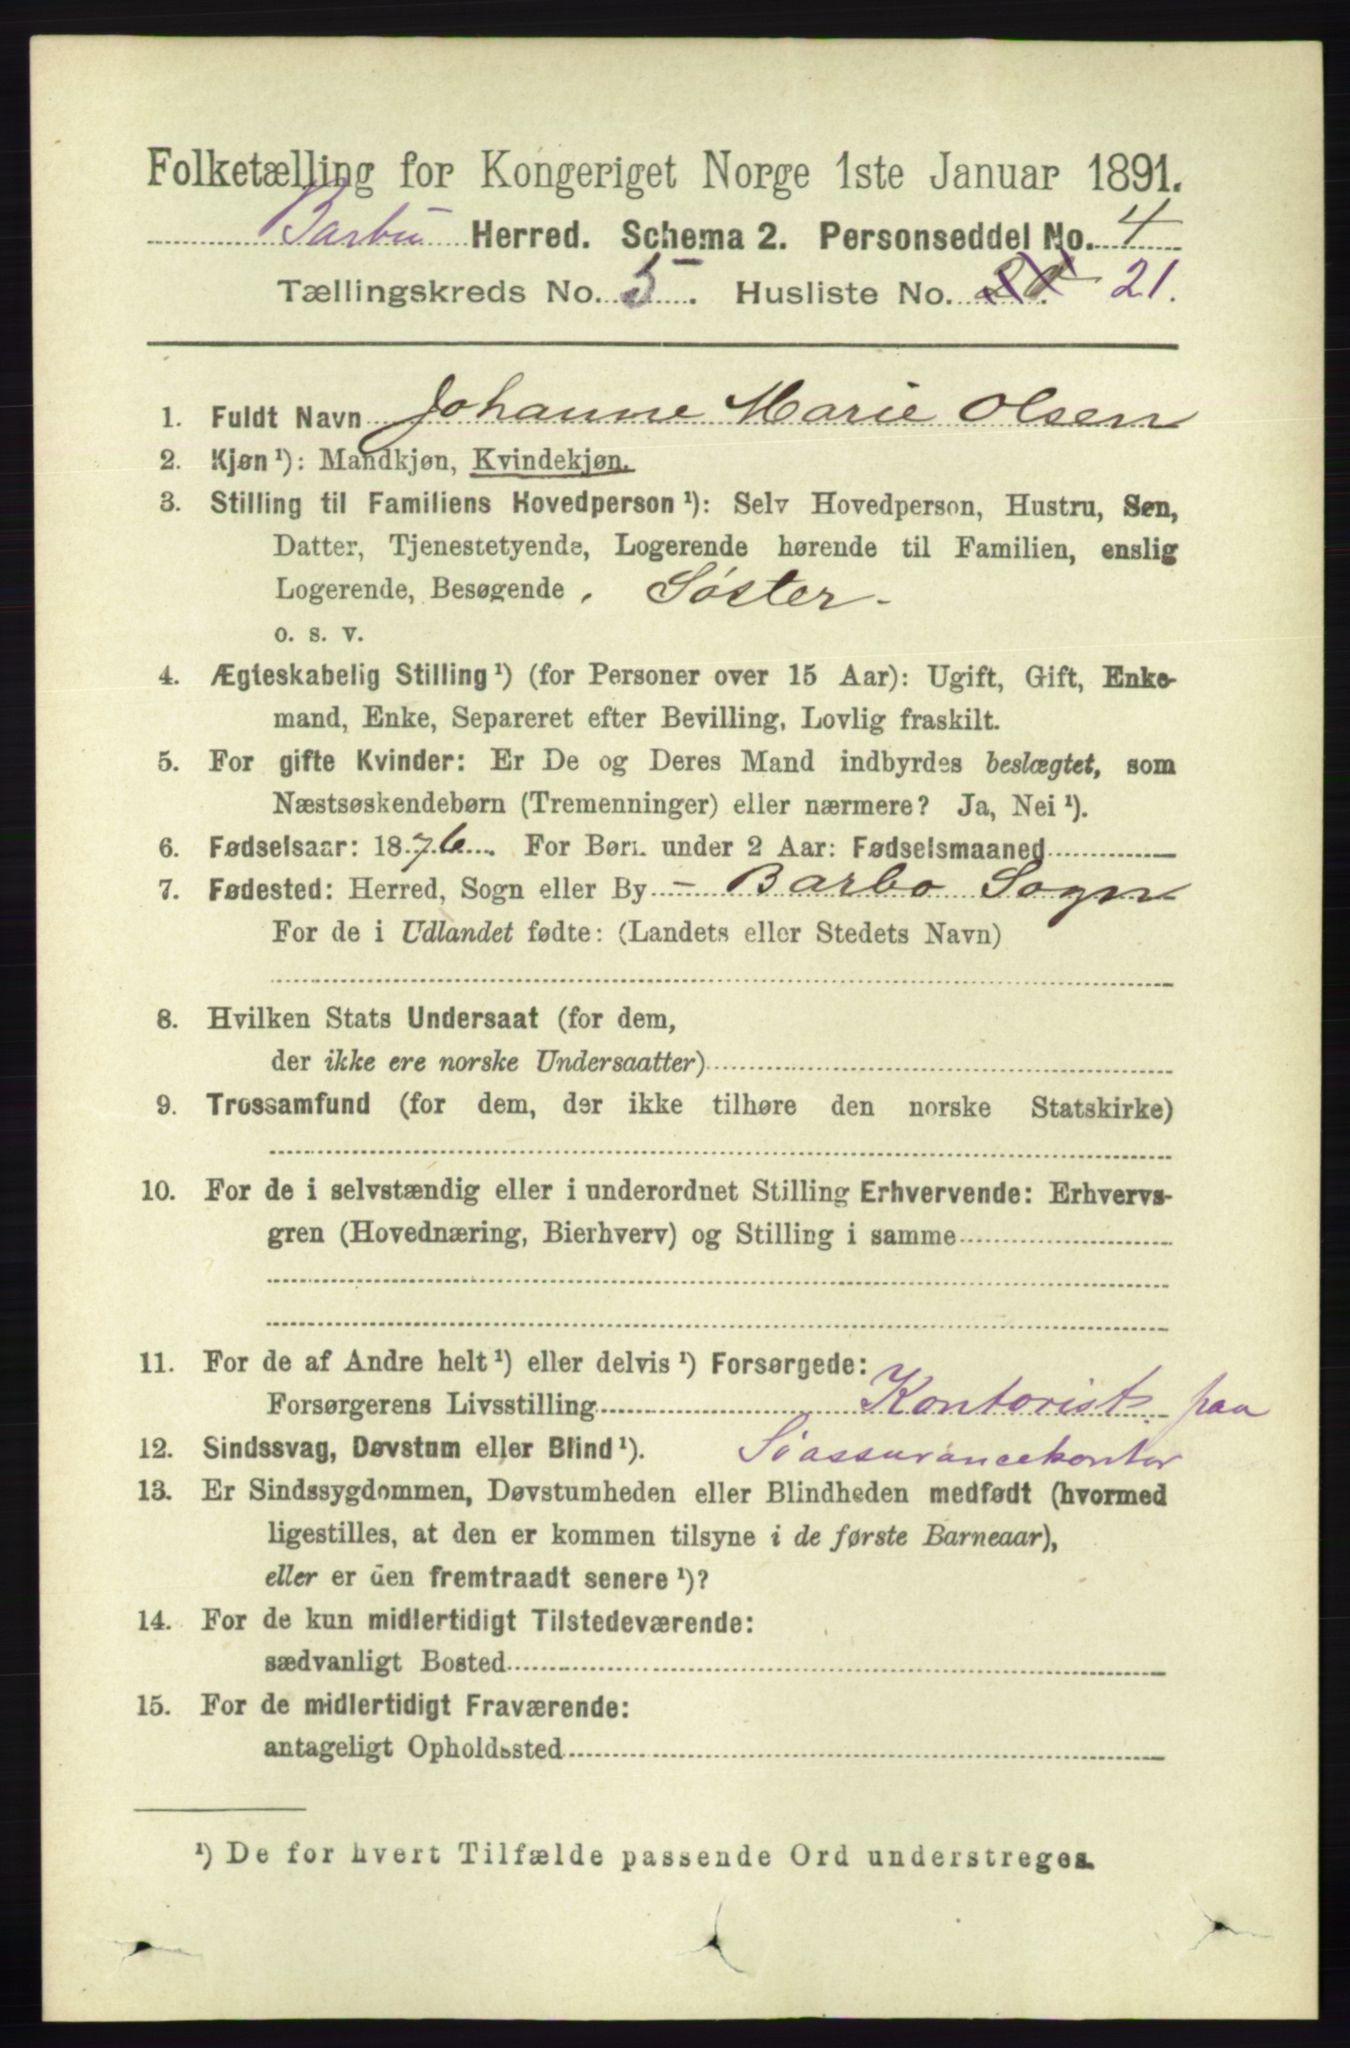 Folketælling for Kongeriget Norge 1ste Januar 1891.
Barbu Herred. Schema 2. Personseddel No. 4
Tællingskreds No. 5. Husliste No. 20 21.
1. Fuldt Navn Johanne Marie Olsen
2. Kjøn ¹): Mandkjøn, Kvindekjøn.
3. Stilling til Familiens Hovedperson ¹): Selv Hovedperson, Hustru, Søn,
Datter, Tjenestetyende, Logerende hørende til Familien, enslig
Logerende, Besøgende . Søster -
o. s. v.
4. Ægteskabelig Stilling ¹) (for Personer over 15 Aar): Ugift, Gift, Enke-
mand, Enke, Separeret efter Bevilling, Lovlig fraskilt.
5. For gifte Kvinder: Er De og Deres Mand indbyrdes beslægtet, som
Næstsøskendebørn (Tremenninger) eller nærmere? Ja, Nei ¹).
6. Fødselsaar: 1876. For Børn under 2 Aar: Fødselsmaaned
7. Fødested: Herred, Sogn eller By - Barbo Sogn
For de i Udlandet fødte: (Landets eller Stedets Navn)
8. Hvilken Stats Undersaat (for dem,
der ikke ere norske Undersaatter)
9. Trossamfund (for dem, der ikke tilhøre den norske Statskirke)
10. For de i selvstændig eller i underordnet Stilling Erhvervende: Erhvervs-
gren (Hovednæring, Bierhverv) og Stilling i samme
11. For de af Andre helt ¹) eller delvis ¹) Forsørgede:
Forsørgerens Livsstilling Kontorist paa
12. Sindssvag, Døvstum eller Blind ¹). Søassurancekontor
13. Er Sindssygdommen, Døvstumheden eller Blindheden medfødt (hvormed
ligestilles, at den er kommen tilsyne i de første Barneaar),
eller er den fremtraadt senere ¹)?
14. For de kun midlertidigt Tilstedeværende:
sædvanligt Bosted
15. For de midlertidigt Fraværende:
antageligt Opholdssted
¹) De for hvert Tilfælde passende Ord understreges.